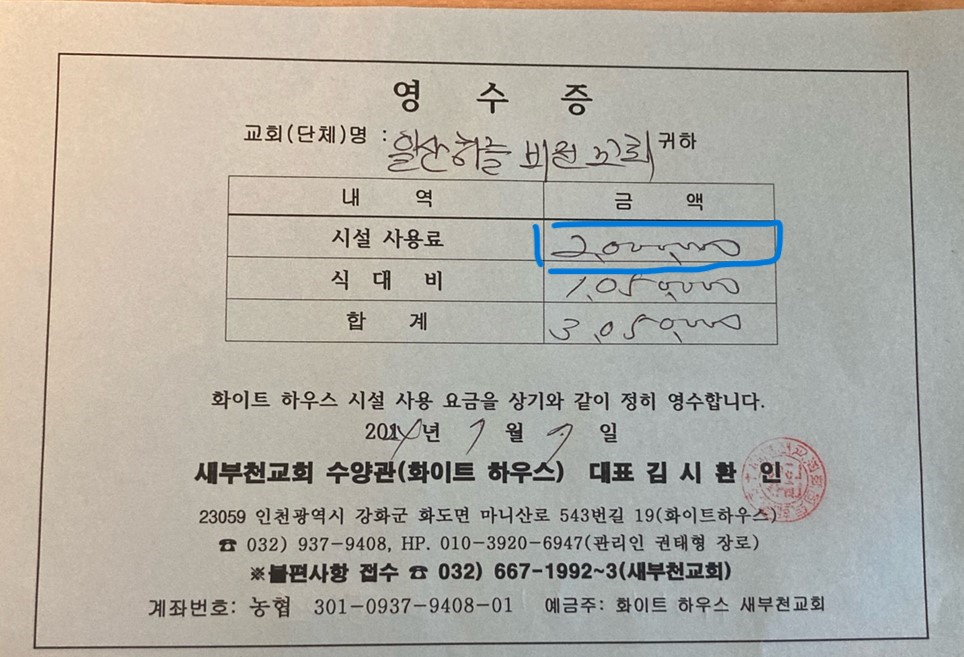 영 수 증
교회(단체)명 : 일산하늘 비전 교회 귀하
내 역 금 액
시설 사용료 2,000,000
식 대 비 1,050,000
합 계 3,050,000
화이트 하우스 시설 사용 요금을 상기와 같이 정히 영수합니다.
년 월 일
새부천교회 수양관(화이트 하우스) 대표 김 시 환 인
23059 인천광역시 강화군 화도면 마니산로 543번길 19(화이트하우스)
☎ 032) 937-9408, HP. 010-3920-6947(관리인 권태형 장로)
※불편사항 접수 ☎ 032) 667-1992~3(새부천교회)
계좌번호: 농협 301-0937-9408-01 예금주: 화이트 하우스 새부천교회